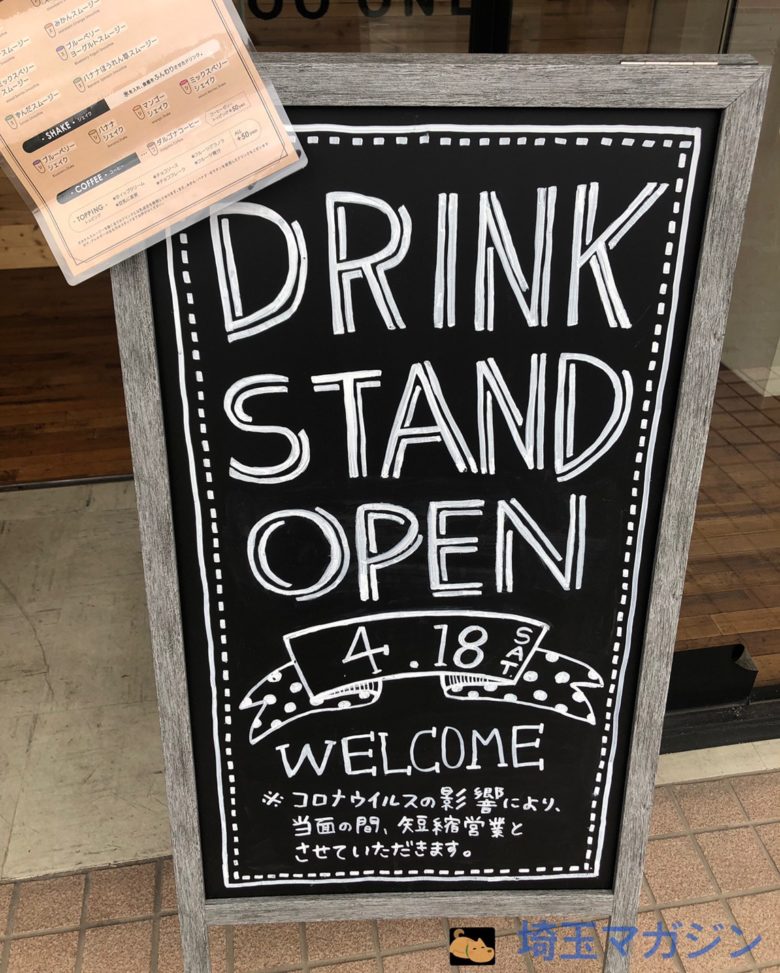 みかんスムージー
ブルーベリー
ヨーグルトスムージー
バナナほうれん草スムージー
ミックスベリー
スムージー
ずんだスムージー
・SHAKE・シェイク
バナナ
シェイク
マンゴー
シェイク
ミックスベリー
シェイク
ブルーベリー
シェイク
・COFFEE・コーヒー
ダルゴナコーヒー
・TOPPING・
トッピング
DRINK
STAND
OPEN
4.18 SAT.
WELCOME
※ コロナウイルスの影響により、
当面の間、短縮営業と
させていただきます。
埼玉マガジン